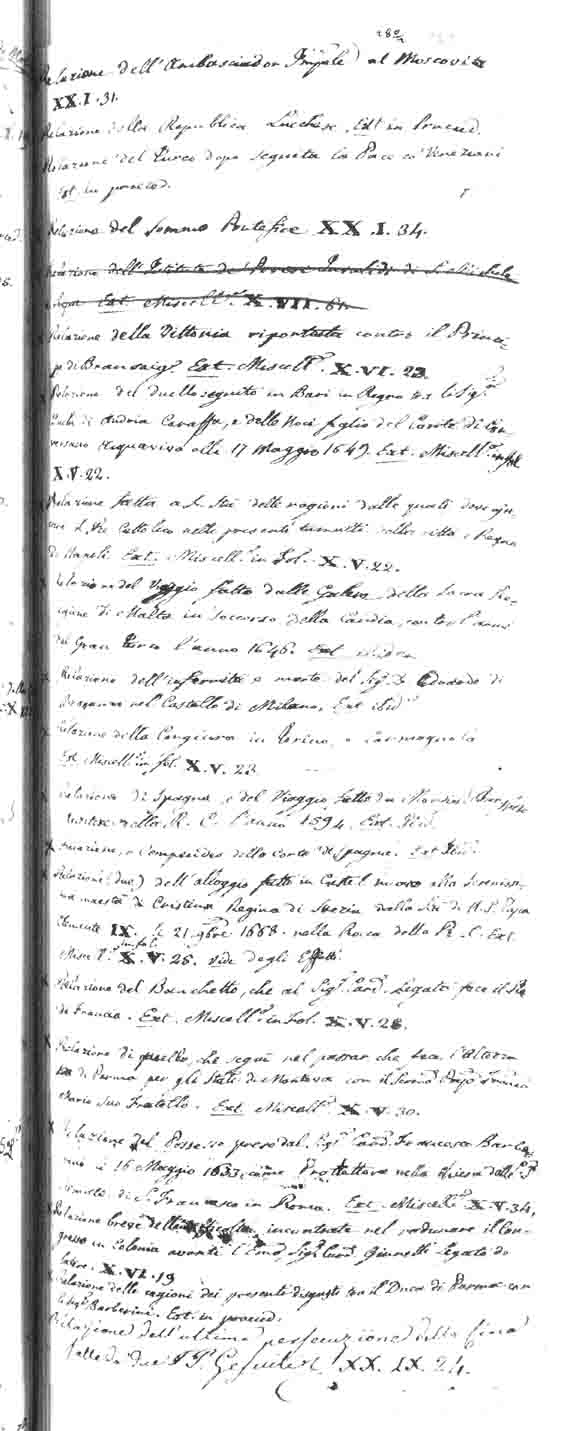 280
Relazione dell'Ambasciador Impale al Moscovita
XX.I.31.
Relazione della Republica Lucchese, Ext in praeced.
Relazione del Turco dopo seguita la Pace co' Veneziani
Ext. in praeced.
Relazione del Sommo Pontefice XX.I.34.
Relazione dell'Istituto de' Poveri Invalidi di
Ext. Miscell. X.VII.
Relazione della Vittoria riportata contro il Princi-
pe di Bransuig. Ext. Miscell. X.VI.23.
Relazione del duello seguito in Bari in Regno tra li Sig.
Duchi di Andria Caraffa, e delle Noci figlio del Conte di Con-
versano Acquaviva alli 17 Maggio 164 . Ext. Miscell. in fol.
X.V.22.
Relazione fatta a S. Stà delle ragioni dalle quali
il Re Cattolico nelle presenti tumulti della città e Regno
di Napoli. Ext. Miscell. in fol. X.V.22.
Relazione del Viaggio fatto dalle Galere della Sacra Re-
ligione di Malta in soccorso della Candia, contro l'armi
del Gran Turco l'anno 1646. Ext. ibidem
Relazione dell'infermità e morte del Sig. D. Edoardo di
Braganza nel Castello di Milano, Ext ibid.
Relazione della Congiura in Torino, e Carmagnola
Ext. Miscell. in fol. X.V.23.
Relazione di Spagna, e del Viaggio fatto da Monsig.
nella R. C. l'anno 1594. Ext. Ibid.
Relazione, e Compendio della Corte di Spagna. Ext Ibid.
Relazioni (due) dell'alloggio fatto in Castel nuovo alla Sereniss-
ma maestà di Cristina Regina di Svezia della Stà di N.S. Papa
Clemente IX. li 21 9bre 1668. nella Rocca della Ext.
Miscell. in fol. X.V.25. vide degli Effetti.
Relazione del Banchetto, che al Sig. Card. Legato fece il Re
di Francia. Ext. Miscell. in fol. X.V.28.
Relazione di quello, che seguì nel passar che fece l'Altezza
di Parma per gli Stati di Mantova con il Serenmo Prnpe Francesco
Maria suo Fratello. Ext. Miscell. X.V.30.
Relazione del Possesso preso dal Sig. Card. Francesco Barbe-
rino li 16 Maggio 1633, come Protettore nella Chiesa delle
di S. Francesco in Roma. Ext. Miscell. X.V.34,
Relazione breve delle incontrate nel radunare il Con-
gresso in Colonia avanti l'Emo Sig. Card. Ginnetti Legato de
latere. X.VI.19
Relazione delle cagioni dei presenti disgusti tra il Duca di Parma con
li Sig. Barberini. Ext. in praeced.
Relazione dell'ultima persecuzione della Cina
fatta da due PP. Gesuiti XX.IX.24.